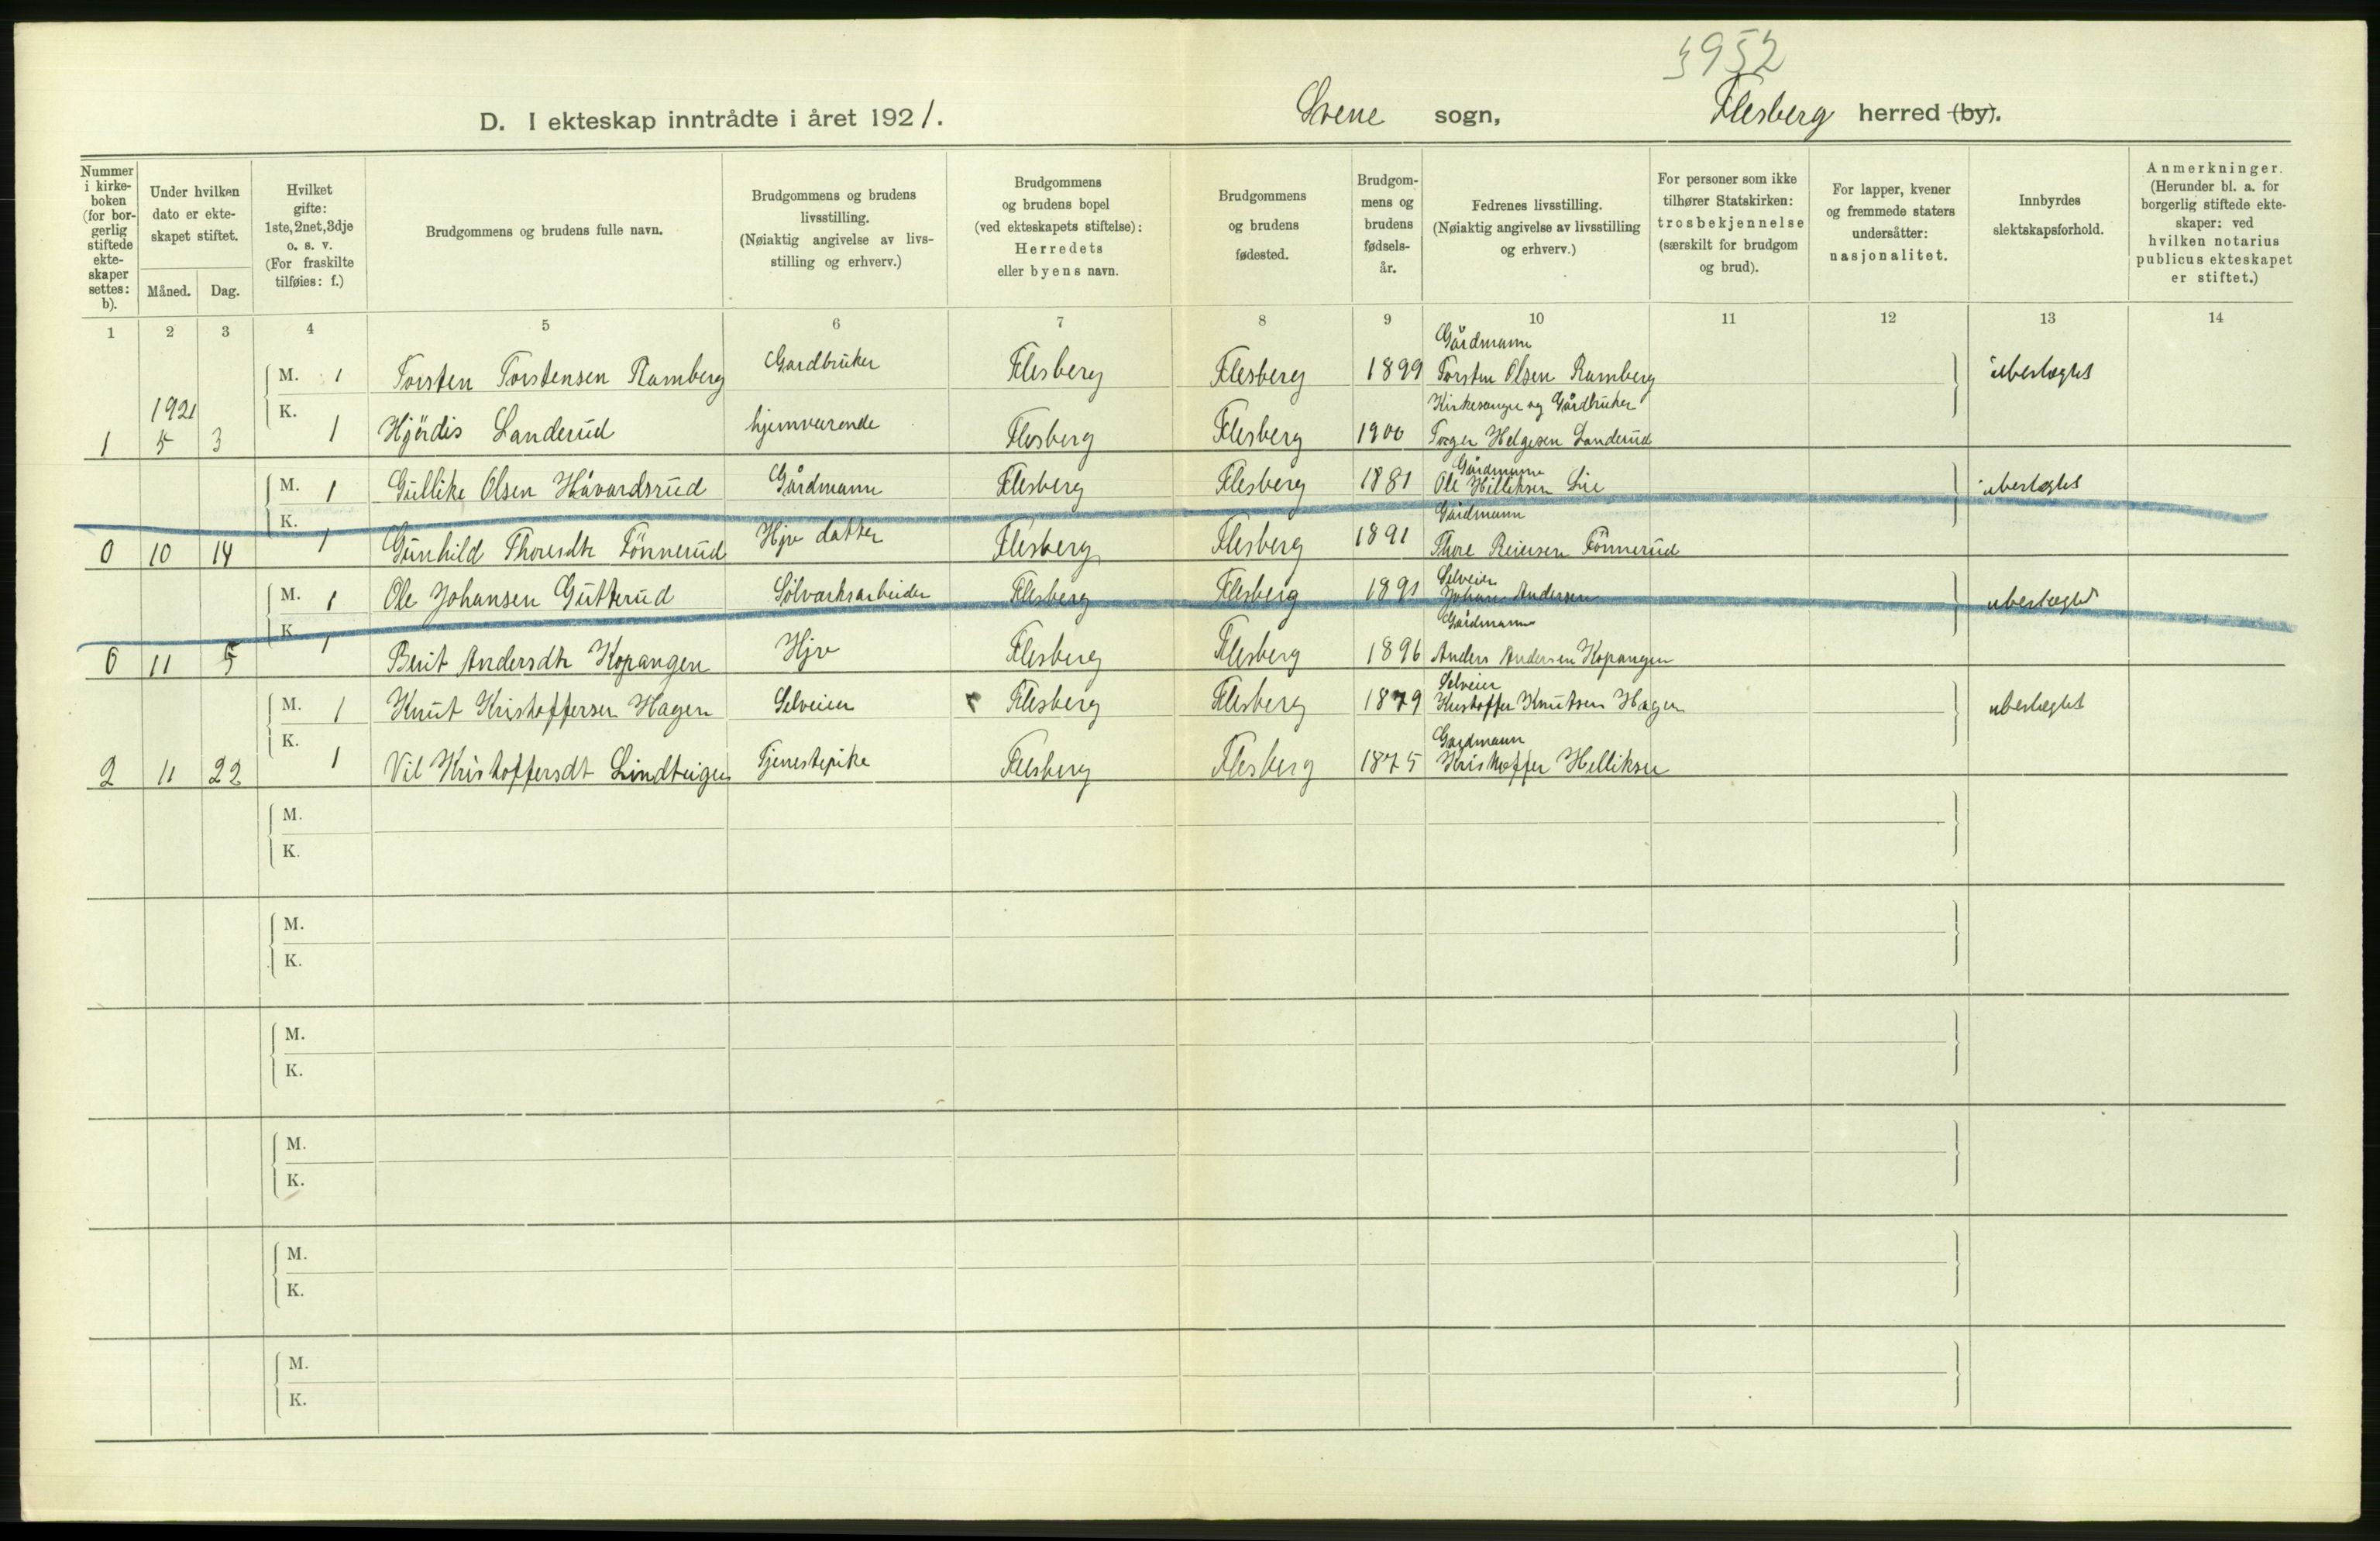 3952
D. I ekteskap inntrådte i året 1921. Svene sogn, Flesberg herred (by).
Nummer i kirkeboken (for borgerlig stiftede ekteskaper settes: b).
Under hvilken dato er ekteskapet stiftet.
Måned. Dag.
Hvilket gifte: 1ste, 2net, 3dje o. s. v. (For fraskilte tilføies: f.)
Brudgommens og brudens fulle navn.
Brudgommens og brudens livsstilling. (Nøiaktig angivelse av livsstilling og erhverv.)
Brudgommens og brudens bopel (ved ekteskapets stiftelse): Herredets eller byens navn.
Brudgommens og brudens fødested.
Brudgommens og brudens fødselsår.
Fedrenes livsstilling. (Nøiaktig angivelse av livsstilling og erhverv.)
For personer som ikke tilhører Statskirken: trosbekjennelse (særskilt for brudgom og brud).
For lapper, kvener og fremmede staters undersåtter: nasjonalitet.
Innbyrdes slektskapsforhold.
Anmerkninger. (Herunder bl. a. for borgerlig stiftede ekteskaper: ved hvilken notarius publicus ekteskapet er stiftet.)
1 2 3 4 5 6 7 8 9 10 11 12 13 14
Gårdmann
M. 1 Torsten Torstensen Ramberg Gardbruker Flesberg Flesberg 1899 Torsten Olsen Ramberg ubeslægtet
1921 K. Kirkesanger og Gårdbruker
1 5 3 1 Hjördis Landerud hjemværende Flesberg Flesberg 1900 Torger Helgesen Landerud
Gårdmann
M. 1 Gullike Olsen Håvardsrud Gårdmann Flesberg Flesberg 1881 Ole Helliksen Lie ubeslægtet
K. Gårdmann
0 10 14 1 Gunhild Thoresdtr Tönnerud Hjv datter Flesberg Flesberg 1891 Thore Reiersen Tönnerud
Selveier
M. 1 Ole Johansen Gutterud Sölvverksarbeider Flesberg Flesberg 1891 Johan Andersen ubeslægtet
K. Gårdmann
0 11 5 1 Berit Andersdtr Kopangen Hjv Flesberg Flesberg 1896 Anders Andersen Kopangen
Selveier
M. 1 Knut Kristoffersen Hagen Selveier Flesberg Flesberg 1879 Kristoffer Knutsen Hagen ubeslægtet
K. Gardmann
2 11 22 1 Vil Kristoffersdt Lindteigen Tjenestepike Flesberg Flesberg 1875 Kristoffer Helliksen
M.
K.
M.
K.
M.
K.
M.
K.
M.
K.
M.
K.